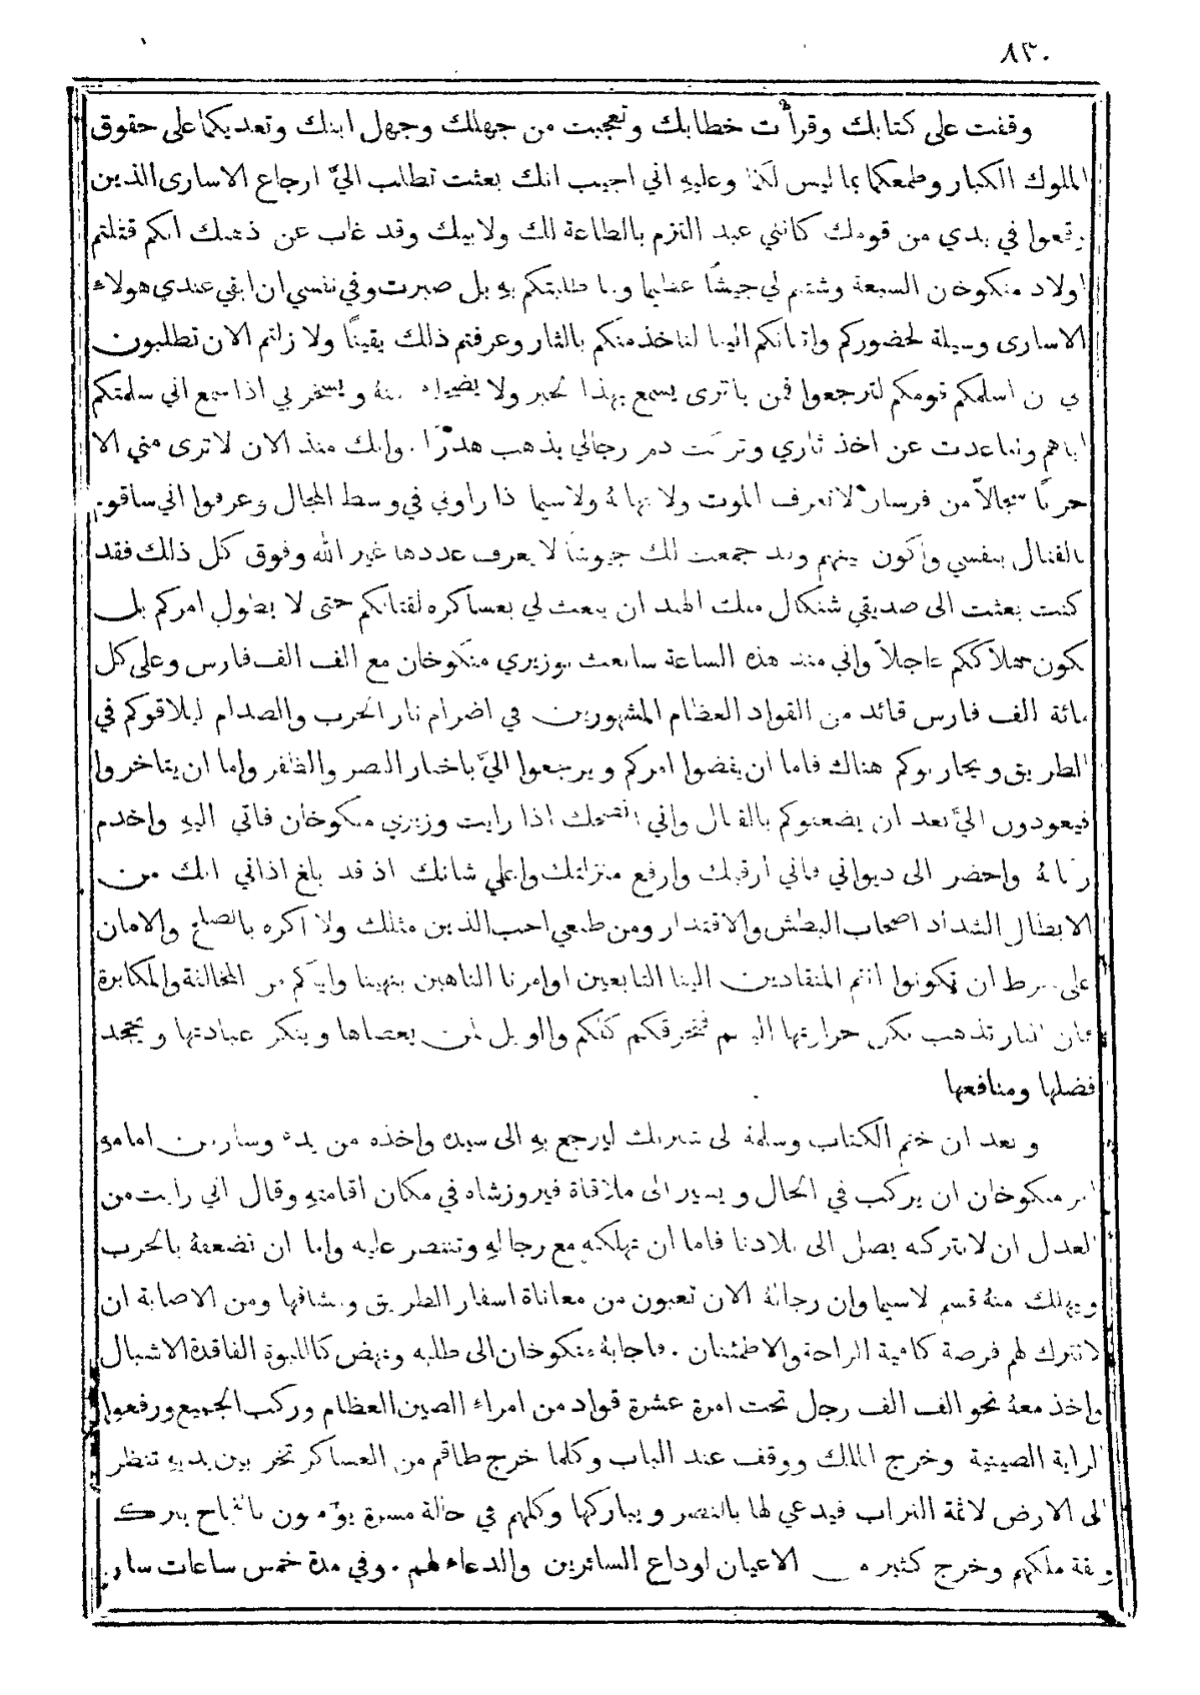 ٨٣٠
وقفت على كتابك وقرأت خطابك وتعجبت من جهلك وجهل ابنك وتعديكما على حقوق
الملوك الكبار وطمعكما بما ليس لكما وعليهِ اني اجيب انك بعثت تطلب اليَّ ارجاع الاسارى الذين
وقعوا في يدي من قومك كانني عبد التزم بالطاعة لك ولابيك وقد غاب عن ذهنك انكم قتلتم
اولاد منكوخان السبعة وشتتم لي جيشًا عظيما وما طلبتكم بهِ بل صبرت وفي نفسي ان ابقي عندي هولاء
الاسارى وسيلة لحضوركم واتيانكم الينا لناخذ منكم بالثار وعرفتم ذلك يقينًا ولا زلتم الان تطلبون
ان اسلمكم قومكم لترجعوا فمن يا ترى يسمع بهذا الخبر ولا ويسخر بي اذا سمع اني سلمتكم
اياهم وتباعدت عن اخذ ثاري وتركت دم رجالي يذهب هدرًا. وانك منذ الان لا ترى مني الا
حربًا سجالاً من فرسان لا تعرف الموت ولا تهابهُ ولا سيما اذا راوني في وسط المجال وعرفوا اني ساقوم
بالقتال بنفسي واكون بينهم وقد جمعت لك جيوشًا لا يعرف عددها غير الله وفوق كل ذلك فقد
كنت بعثت الى صديقي شنكال ملك الهند ان يبعث لي بعساكره لقتالكم حتى لا يطول امركم بل
يكون هلاككم عاجلاً واني منذ هذه الساعة سابعث بوزيري منكوخان مع الف الف فارس وعلى كل
مائة الف فارس قائد من القواد العظام المشهورين في اضرام نار الحرب والصدام ليلاقوكم في
الطريق ويحاربوكم هناك فاما ان يفضوا امركم ويرجعوا اليَّ باخبار النصر والظفر واما ان يتاخروا
فيعودون اليَّ بعد ان يضعفوكم بالقتال واني انصحك اذا رايت وزيري منكوخان فاتي اليهِ واخدم
ركابهُ واحضر الى ديواني فاني ارقيك وارفع منزلتك واعلي شانك اذ قد بلغ اذاني انك من
الابطال الشداد اصحاب البطش والاقتدار ومن طبعي احب الذين مثلك ولا اكره بالصلح والامان
على شرط ان تكونوا انتم المنقادين الينا التابعين اوامرنا الناهين بنهينا واياكم من المخالفة والمكابرة
فان النار تذهب بكل حرارتها اليكم فتحرقكم كلكم والويل لمن يعصاها وينكر عبادتها ويجحد
فضلها ومنافعها
وبعد ان ختم الكتاب وسلمهُ الى شبرنك ليرجع بهِ الى سيده واخذه من يده وسار من امامهِ
امر منكوخان ان يركب في الحال ويسير الى ملاقاة فيروزشاه في مكان اقامتهِ وقال اني رايت من
العدل ان لا نتركه يصل الى بلادنا فاما ان تهلكه مع رجالهِ وتنتصر عليه واما ان تضعفهُ بالحرب
ويهلك منهُ قسم لاسيما وان رجالهُ الان تعبون من معاناة اسفار الطريق ومشاقها ومن الاصابة ان
لا نترك لهم فرصة كافية للراحة والاطمئنان. فاجابهُ منكوخان الى طلبه ونهض كاللبوة الفاقدة الاشبال
واخذ معهُ نحو الف الف رجل تحت امرة عشرة قواد من امراء الصين العظام وركب الجميع ورفعوا
الراية الصينية وخرج الملك ووقف عند الباب وكلما خرج طاقم من العساكر تخر بين يديهِ تنظر
الى الارض لاثمة التراب فيدعي لها بالنصر ويباركها وكلهم في حالة مسرة يؤملون بالنجاح ببركة
ملكهم وخرج كثير من الاعيان لوداع السائرين والدعاء لهم. وفي مدة خمس ساعات سار